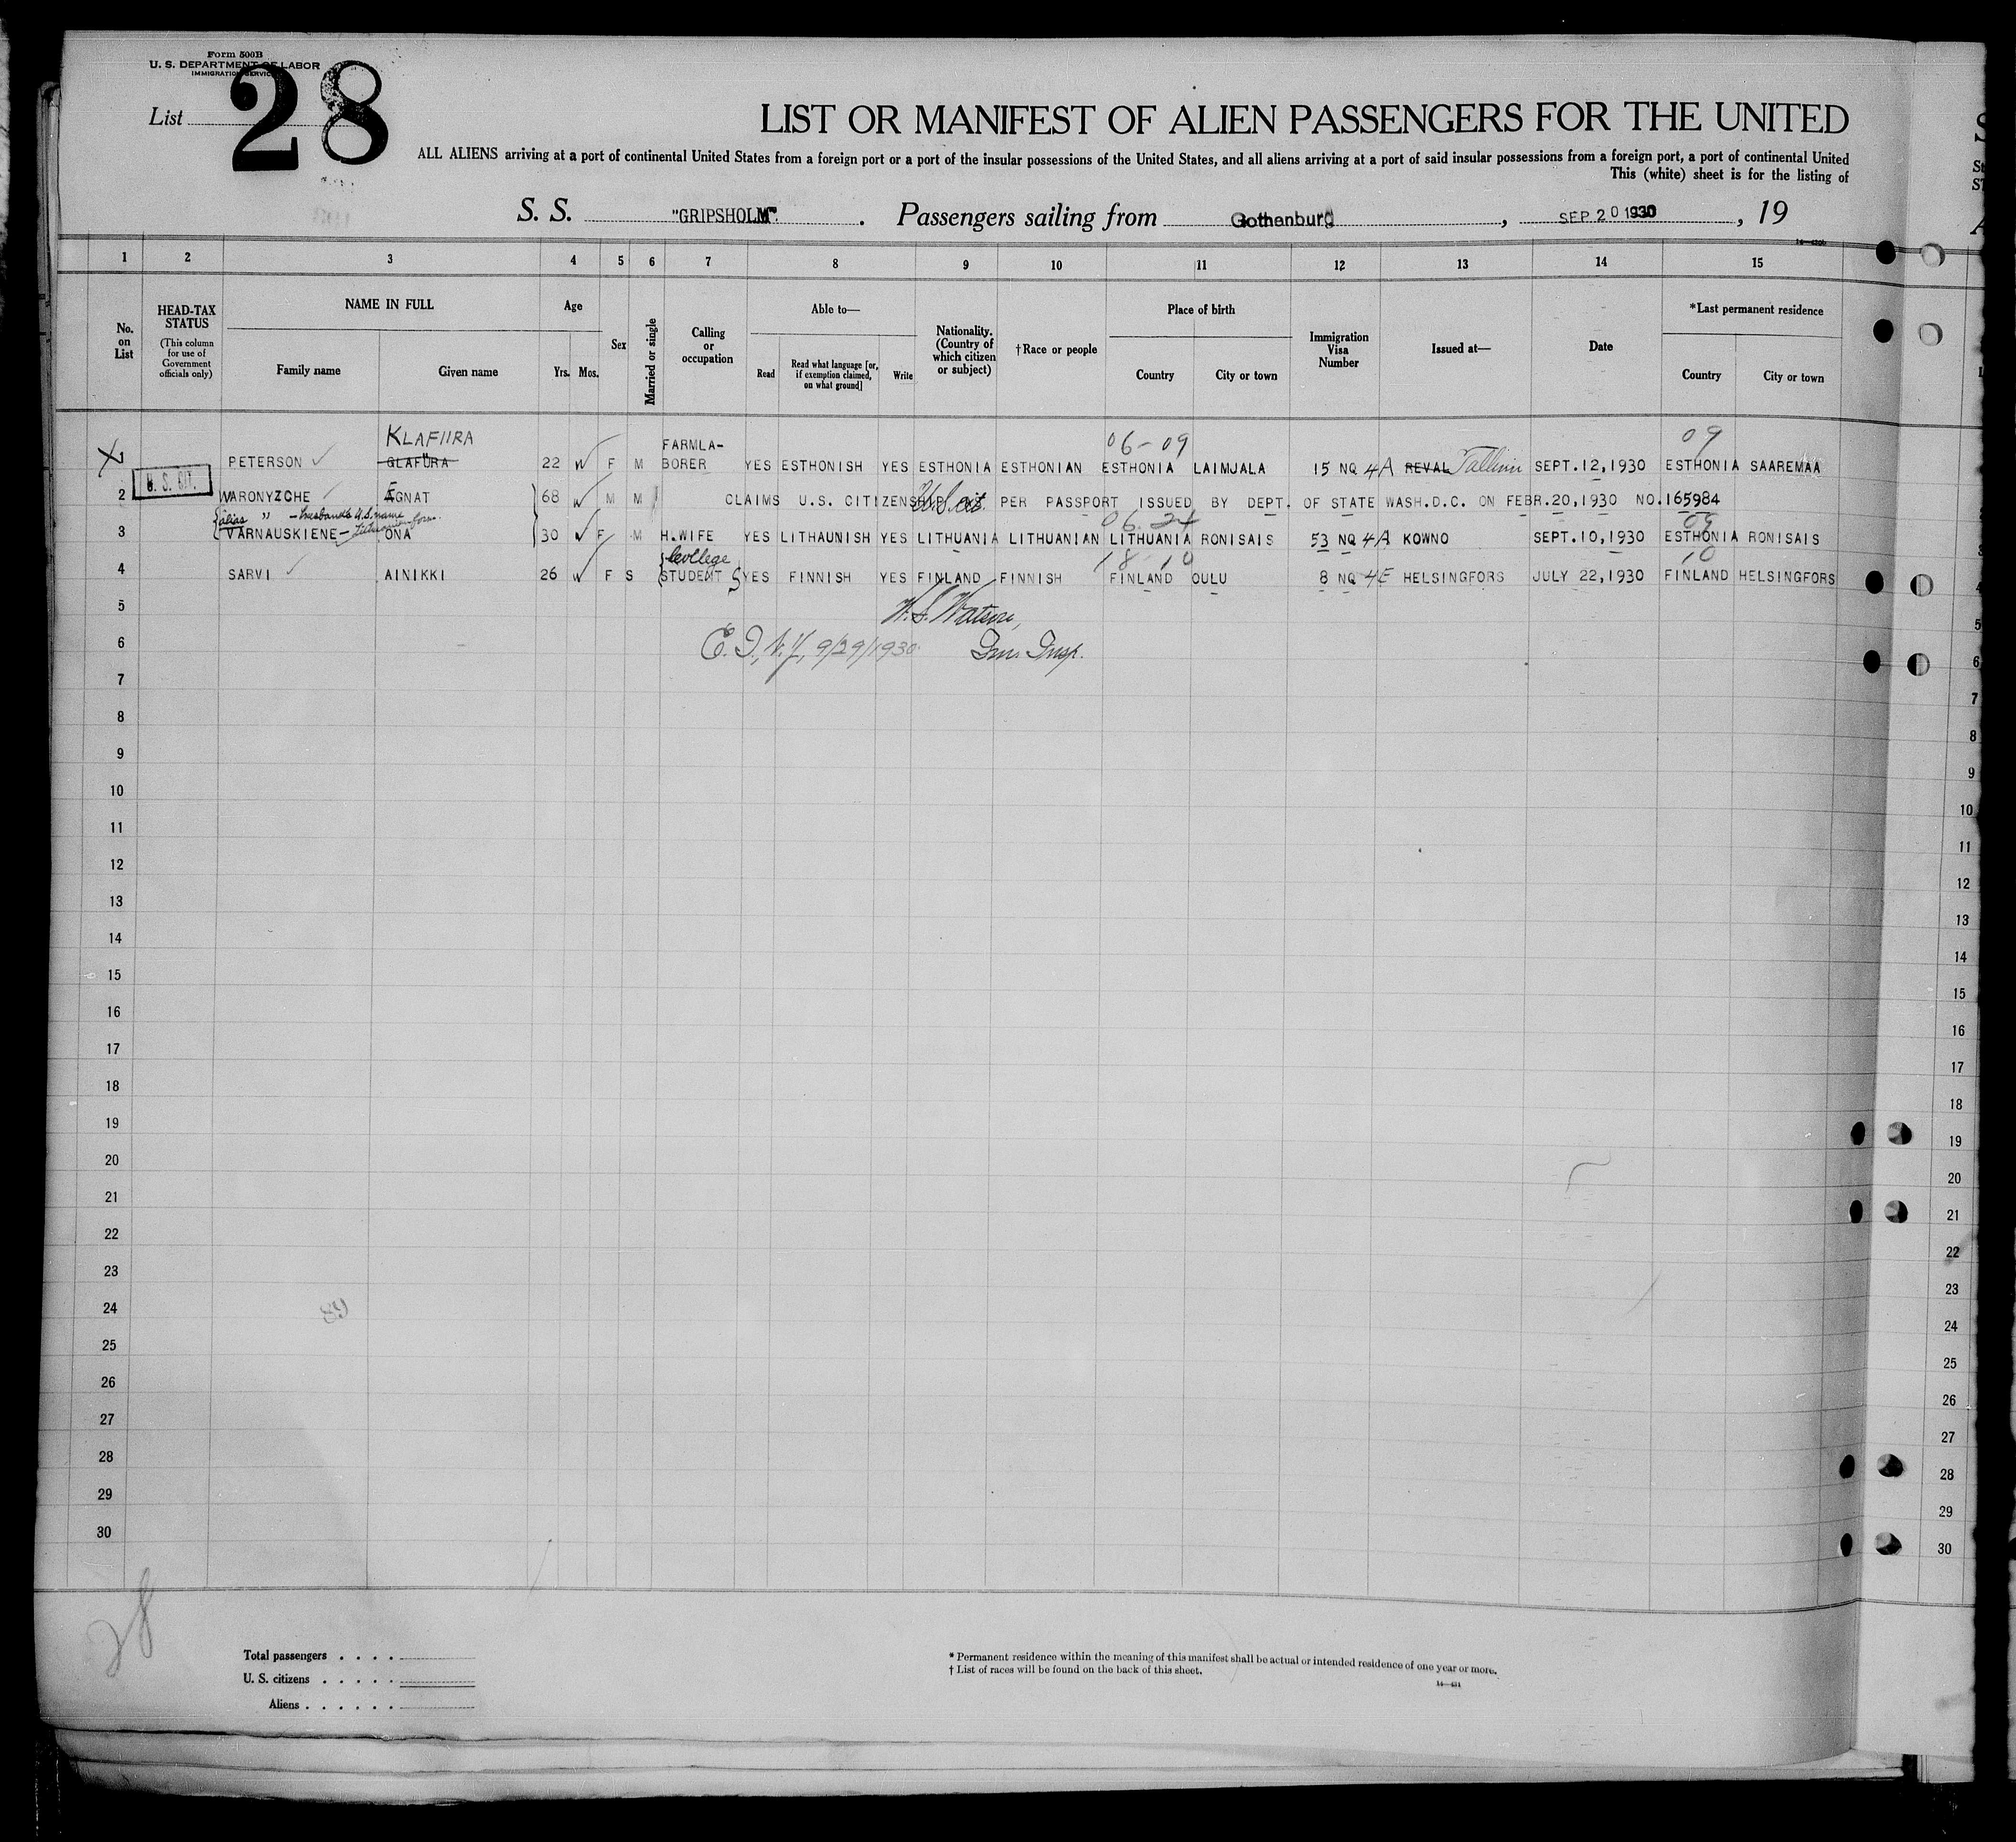 Form 500B
U. S. DEPARTMENT OF LABOR
IMMIGRATION SERVICE
List 28
LIST OR MANIFEST OF ALIEN PASSENGERS FOR THE UNITED
ALL ALIENS arriving at a port of continental United States from a foreign port or a port of the insular possessions of the United States, and all aliens arriving at a port of said insular possessions from a foreign port, a port of continental United
This (white) sheet is for the listing of
S. S. "GRIPSHOLM". Passengers sailing from Gothenburg, SEP 20 1930, 19
1 2 3 4 5 6 7 8 9 10 11 12 13 14 15
No. on List
HEAD-TAX STATUS
(This column for use of Government officials only)
NAME IN FULL
Family name
Given name
Age
Yrs. Mos.
Sex
Married or single
Calling or occupation
Able to—
Read
Read what language [or, if exemption claimed, on what ground]
Write
Nationality. (Country of which citizen or subject)
†Race or people
Place of birth
Country
City or town
Immigration Visa Number
Issued at—
Date
*Last permanent residence
Country
City or town
KLAFIIRA FARMLA- 06-09 09
X 1 PETERSON GLAFÜRA 22 W F M BORER YES ESTHONISH YES ESTHONIA ESTHONIAN ESTHONIA LAIMJALA 15 NQ 4A REVAL Tallinn SEPT.12,1930 ESTHONIA SAAREMAA
U. S. CIT.
2 WARONYZCHE EGNAT 68 M M CLAIMS U.S. CITIZENSHIP U.S. cit. PER PASSPORT ISSUED BY DEPT. OF STATE WASH.D.C. ON FEBR.20,1930 NO.165984
alias " - husband's U.S. name 06 24 09
3 VARNAUSKIENE - Lithuanian form. ONA 30 W F M H.WIFE YES LITHAUNISH YES LITHUANIA LITHUANIAN LITHUANIA RONISAIS 53 NQ 4A KOWNO SEPT.10,1930 ESTHONIA RONISAIS
College 18 10 10
4 SARVI AINIKKI 26 W F S STUDENT YES FINNISH YES FINLAND FINNISH FINLAND OULU 8 NQ 4E HELSINGFORS JULY 22,1930 FINLAND HELSINGFORS
5 Watson,
6 9/29/1930 Imm. Insp.
7
8
9
10
11
12
13
14
15
16
17
18
19
20
21
22
23
24
25
26
27
28
29
30
28
Total passengers
U. S. citizens
Aliens
* Permanent residence within the meaning of this manifest shall be actual or intended residence of one year or more.
† List of races will be found on the back of this sheet.
5
6
7
8
9
10
11
12
13
14
15
16
17
18
19
20
21
22
23
24
25
26
27
28
29
30